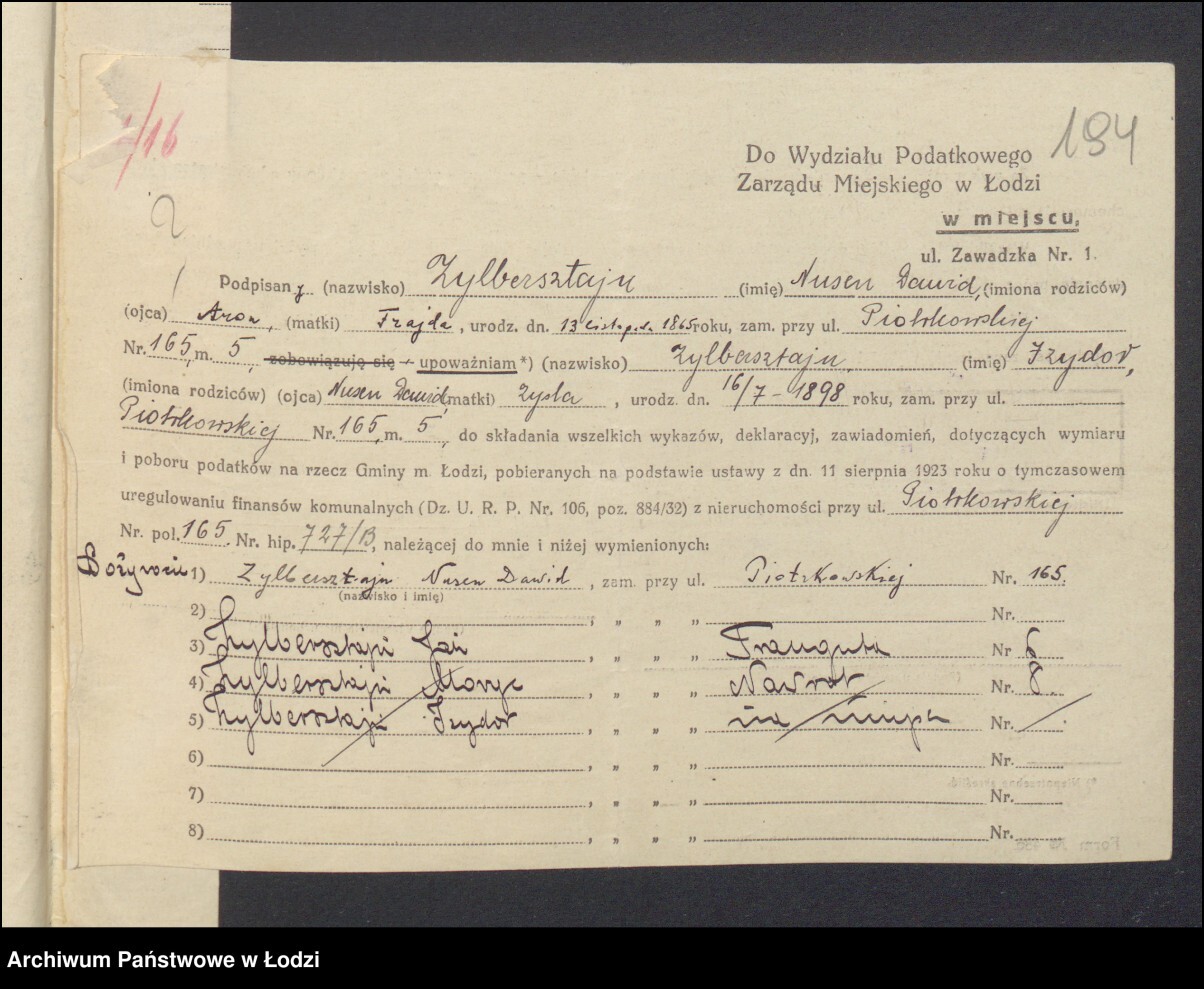 1/16
194
2
Do Wydziału Podatkowego
Zarządu Miejskiego w Łodzi
w miejscu,
ul. Zawadzka Nr. 1.
Podpisany (nazwisko) Zylbersztajn (imię) Nusen Dawid, (imiona rodziców)
(ojca) Aron, (matki) Frajda, urodz. dn. 13 listop. 1865 roku, zam. przy ul. Piotrkowskiej
Nr. 165, m. 5, zobowiązuję się - upoważniam *) (nazwisko) Zylbersztajn, (imię) Izydor,
(imiona rodziców) (ojca) Nusen Dawid, (matki) Zysla, urodz. dn. 16/7 - 1898 roku, zam. przy ul.
Piotrkowskiej Nr. 165, m. 5, do składania wszelkich wykazów, deklaracyj, zawiadomień, dotyczących wymiaru
i poboru podatków na rzecz Gminy m. Łodzi, pobieranych na podstawie ustawy z dn. 11 sierpnia 1923 roku o tymczasowem
uregulowaniu finansów komunalnych (Dz. U. R. P. Nr. 106, poz. 884/32) z nieruchomości przy ul. Piotrkowskiej
Nr. pol. 165. Nr. hip. 727/B, należącej do mnie i niżej wymienionych:
1) Zylbersztajn Nusen Dawid, zam. przy ul. Piotrkowskiej Nr. 165.
(nazwisko i imię)
2) , „ „ „ Nr.
3) Zylbersztajn Jan, „ „ „ Traugutta Nr 6
4) Zylbersztajn Maryc, „ „ „ Nawrot Nr. 8.
5) Zylbersztajn Izydor, „ „ „ Nr.
6) , „ „ „ Nr.
7) , „ „ „ Nr.
8) , „ „ „ Nr.
Archiwum Państwowe w Łodzi